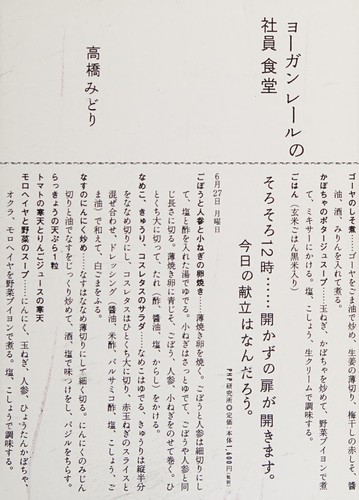 ヨーガン レールの
社員食堂
高橋みどり
ゴーヤのしそ煮……ゴーヤをごま油で炒め、生姜の薄切り、梅干しの赤しそ、醤
油、酒、みりんを入れて煮る。
かぼちゃのポタージュスープ……玉ねぎ、かぼちゃを炒めて、野菜ブイヨンで煮
て、ミキサーにかける。塩、こしょう、生クリームで調味する。
ごはん（玄米ごはん黒米入り）
そろそろ12時……開かずの扉が開きます。
今日の献立はなんだろう。
PHP研究所◎定価:本体1,600円（税別）
6月27日 月曜日
ごぼうと人参と小ねぎの卵焼き……薄焼き卵を焼く。ごぼうと人参は細切りにし
て、塩と酢を入れた湯でゆでる。小ねぎはさっとゆでて、ごぼうや人参と同
じ長さに切る。薄焼き卵に青じそ、ごぼう、人参、小ねぎをのせて巻く。ひ
とくち大に切って、たれ（酢、醤油、塩、からし）をかける。
なめこ、きゅうり、コスレタスのサラダ……なめこはゆでる、きゅうりは縦半分
をななめ切りにし、コスレタスはひとくち大に切り、赤玉ねぎのスライスと
混ぜ合わせ、ドレッシング（醤油、米酢、バルサミコ酢、塩、こしょう、ご
ま油）で和えて、白ごまをふる。
なすのにんにく炒め……なすはななめ薄切りにして細く切る。にんにくのみじん
切りと油でなすをじっくり炒めて、酒、塩で味つけをし、バジルをちらす。
らっきょうの天ぷら1粒
トマトの寒天とりんごジュースの寒天
モロヘイヤと野菜のスープ……にんにく、玉ねぎ、人参、ひょうたんかぼちゃ、
オクラ、モロヘイヤを野菜ブイヨンで煮る。塩、こしょうで調味する。